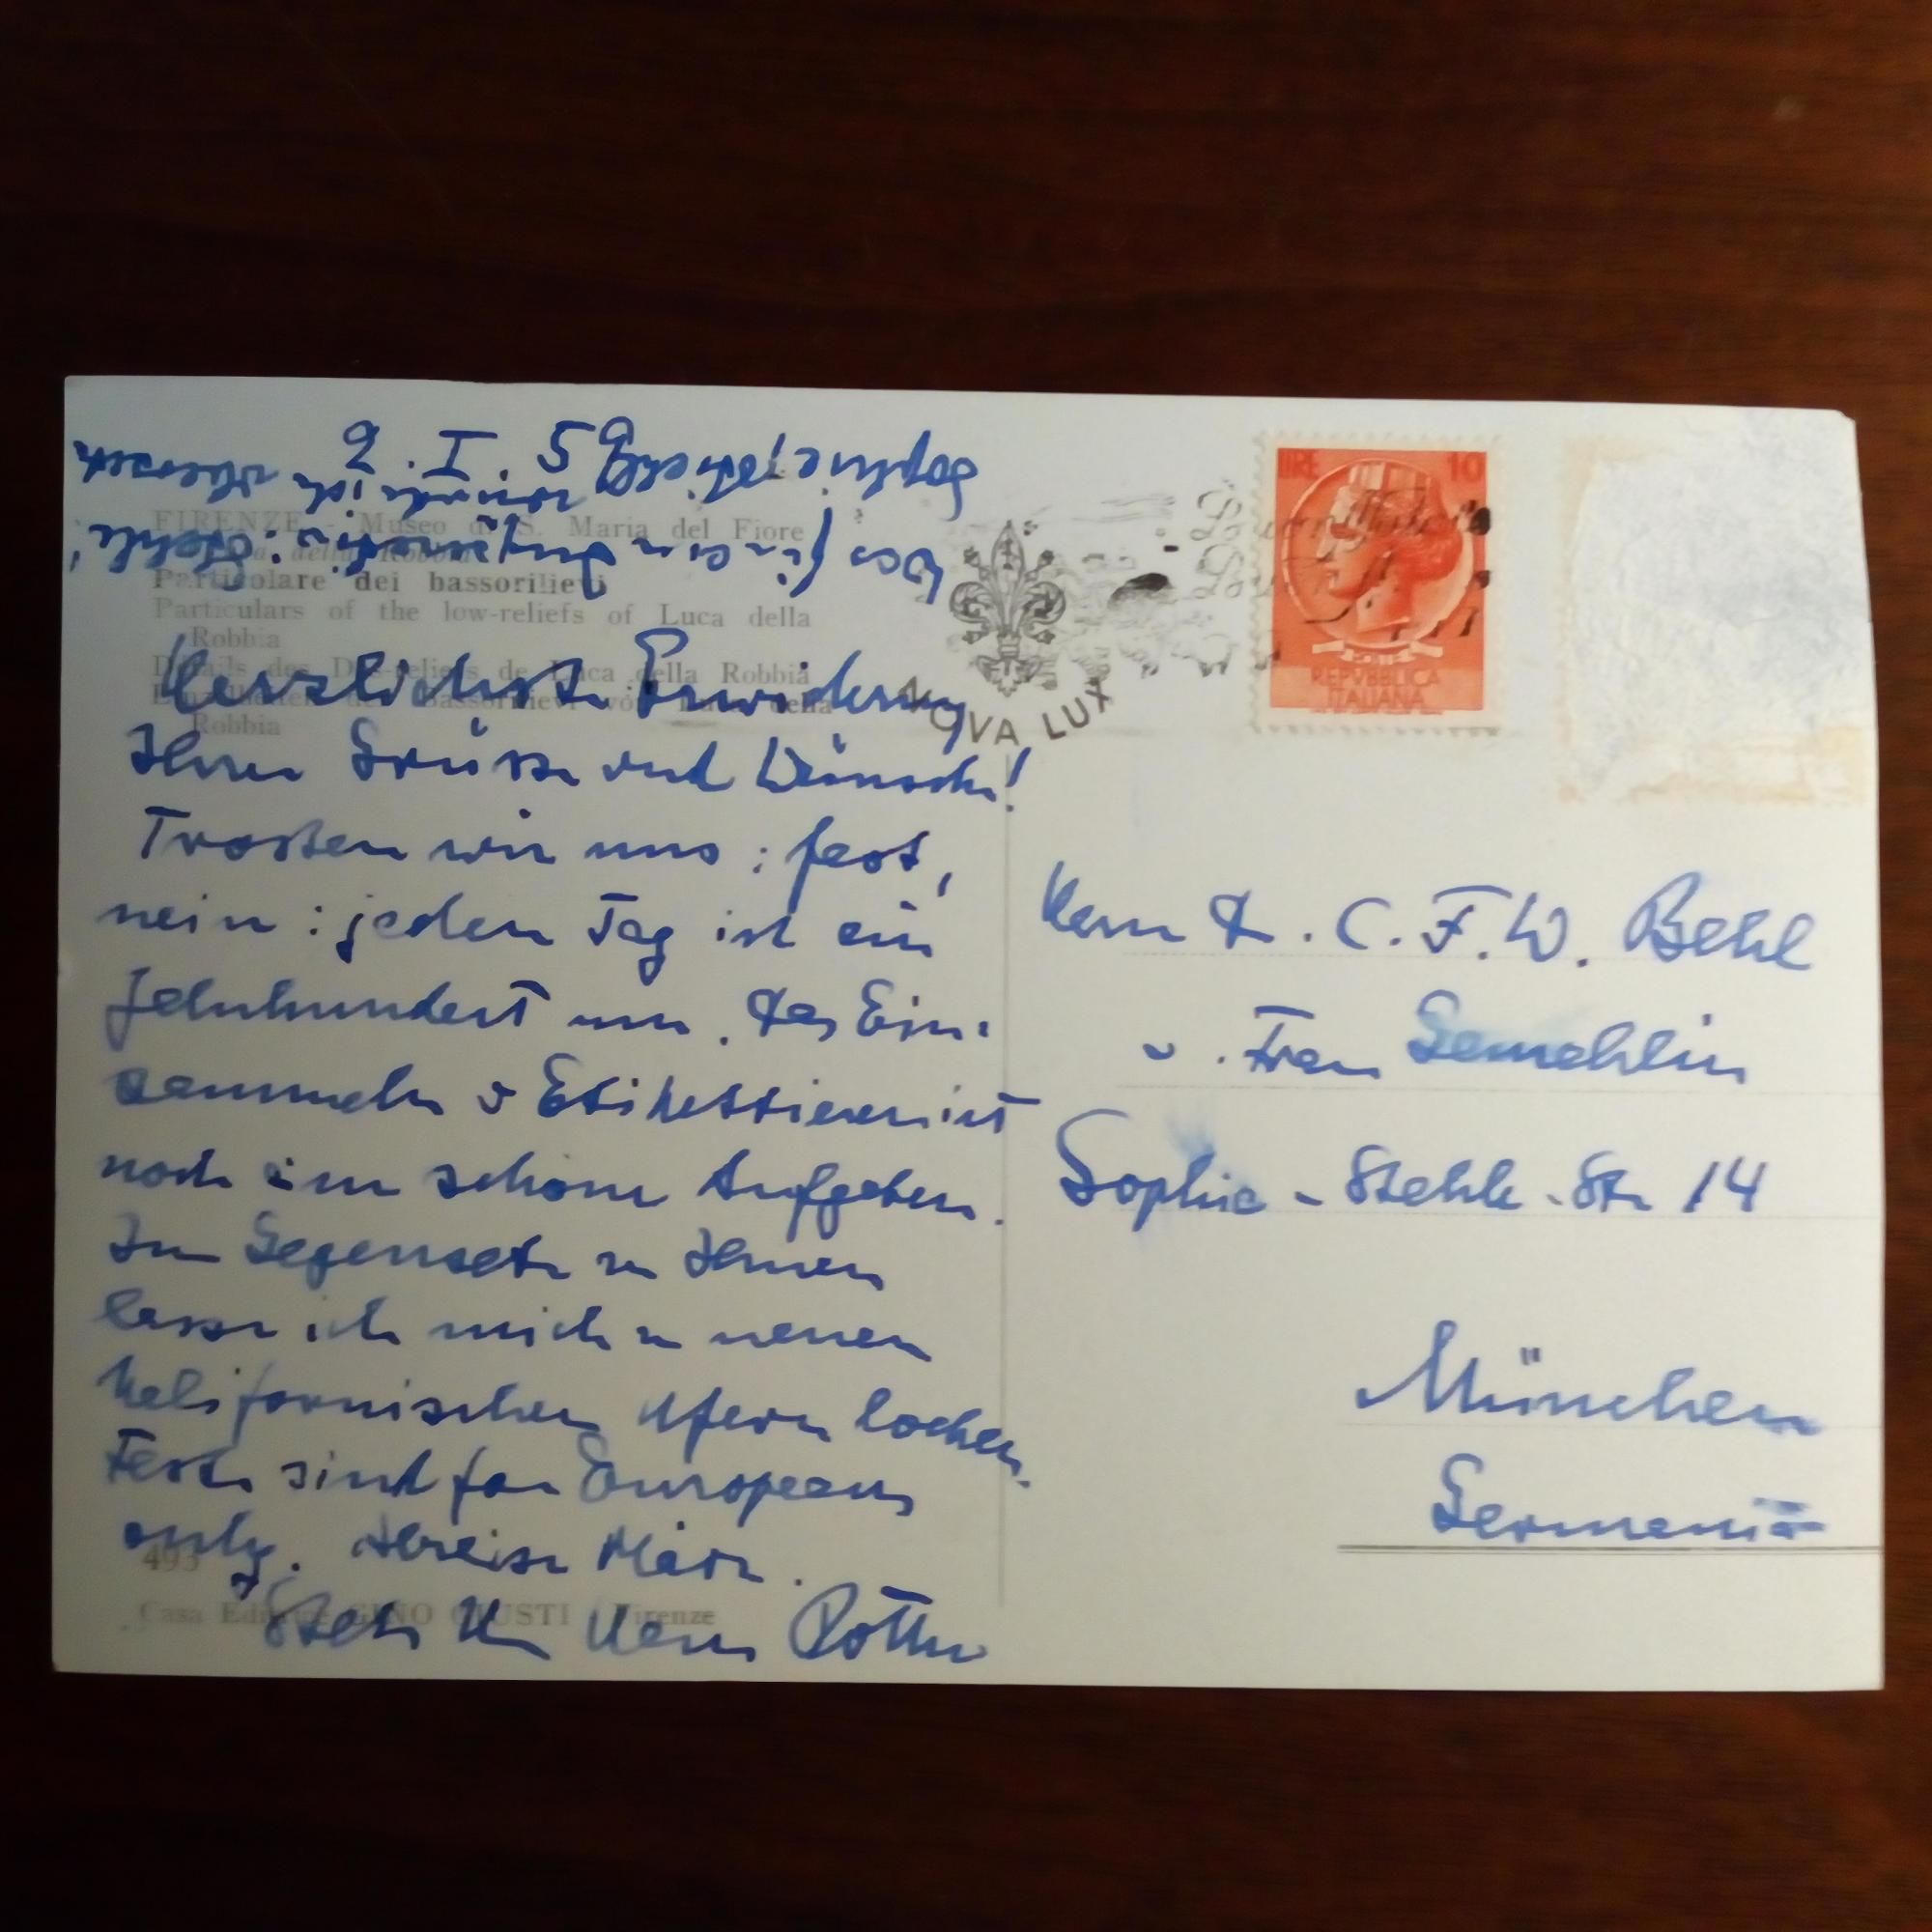 2. I. 59
FIRENZE - Museo di S. Maria del Fiore
Luca della Robbia
Particolare dei bassorilievi
Particulars of the low-reliefs of Luca della
Robbia
Détails des Bas-reliefs de Luca della Robbia
Einzelheiten der Bassorilievi von Luca della
Robbia
Herzlichste Erwiderung
Ihrer Grüsse und Wünsche!
Trösten wir uns: fast,
nein: jeden Tag ist ein
Jahrhundert um. Das Ein-
sammeln u Etikettieren ist
noch eine schöne Aufgaben.
Im Gegensatz zu Ihnen
lasse ich mich zu neuen
kalifornischen Ufern locken.
Feste sind for Europeans
only. Abreise März.
Stets Ihr Hans Rothe
Was für ein Aufwand: Stehle,
Sophie! würde ich
493
Casa Editrice GINO GIUSTI - Firenze
LIRE 10
REPVBBLICA
ITALIANA
NOVA LUX
Herrn Dr. C. F. W. Behl
u. Frau Gemahlin
Sophie-Stehle-Str 14
München
Germania